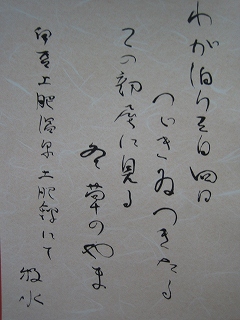 わが泊り三日四日
つづきゐつきたる
この部屋に見る
冬草のやま
伊豆土肥温泉土肥館にて
牧水